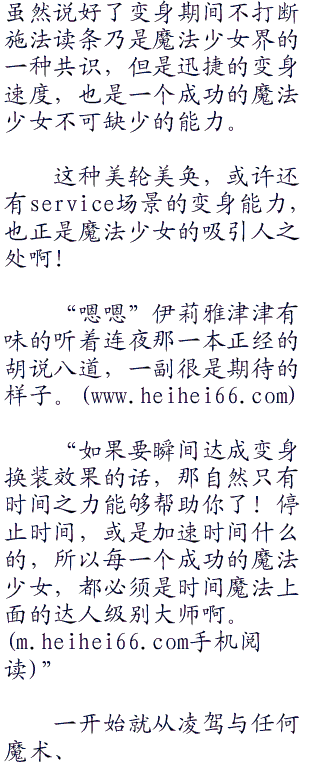 虽然说好了变身期间不打断
施法读条乃是魔法少女界的
一种共识，但是迅捷的变身
速度，也是一个成功的魔法
少女不可缺少的能力。
这种美轮美奂，或许还
有service场景的变身能力，
也正是魔法少女的吸引人之
处啊！
“嗯嗯”伊莉雅津津有
味的听着连夜那一本正经的
胡说八道，一副很是期待的
样子。(www.heihei66.com)
“如果要瞬间达成变身
换装效果的话，那自然只有
时间之力能够帮助你了！停
止时间，或是加速时间什么
的，所以每一个成功的魔法
少女，都必须是时间魔法上
面的达人级别大师啊。
(m.heihei66.com手机阅
读)”
一开始就从凌驾与任何
魔术、